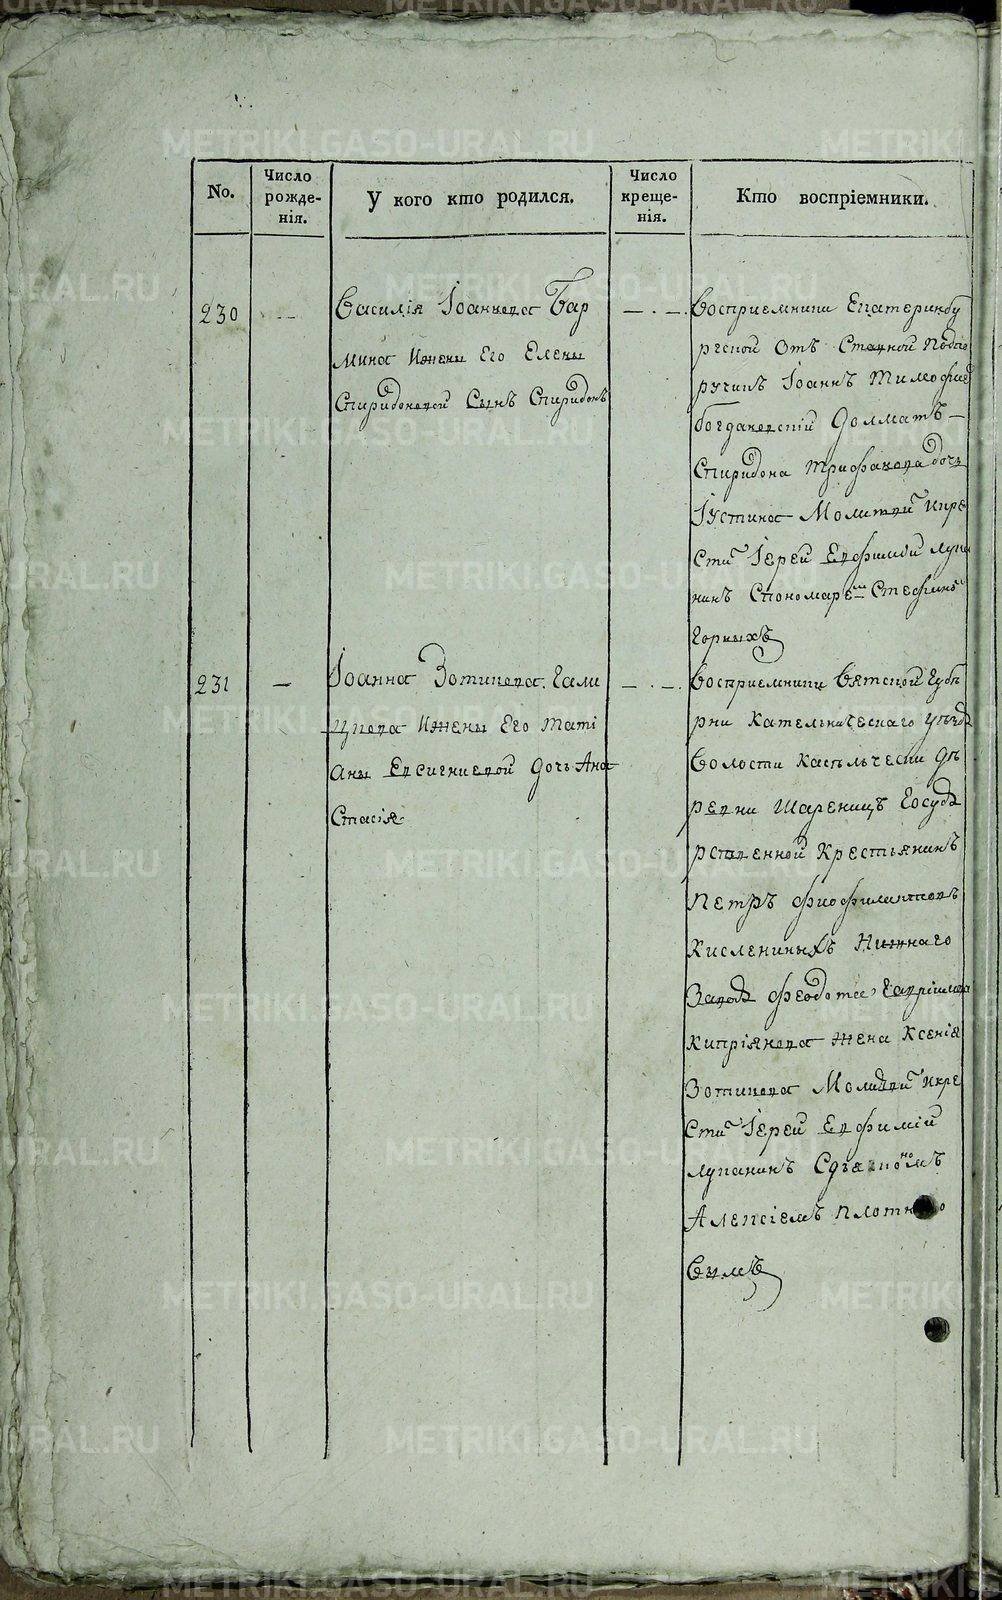 No.
Число рожде- нія.
У кого кто родился.
Число креще- нія.
Кто воспріемники.
230
Василія Іоаннова Бар
мина Ижены Его Елены
Спиридоновой Сынъ Спиридонъ
Восприемники Екатеринбу
ргской Отъ Ставной Подпо
ручикъ Іоаннъ Тимофие
богдановскій Долматъ
Спиридона Трифонова дочь
Іустина Молитвᵘ Икре
Стиᵘ Іерей Евфимій лупа
нинъ Спономаре Стефано
Горныхъ
231
Іоанна Зотикова Гали
цкова Ижены Его Таті
аны Евсигниевой дочь Ана
Стасія
Восприемники Вятской Губѣ
рни Кательническаго уѣзда
Волости дѣ
ревни Шареницъ Госуда
рственной Крестьянинъ
Петръ Фиофилактовъ
Кислениныхъ Нижнаго
Завода Феодота Гавріилова
Кипріянова жена Ксенія
Зотикова Молитвᵘ Икре
Стиᵘ Іерей Евфимій
лупанинъ Сдьякономъ
Алексіемъ Плотнико
Вымъ
METRIKI.GASO-URAL.RU